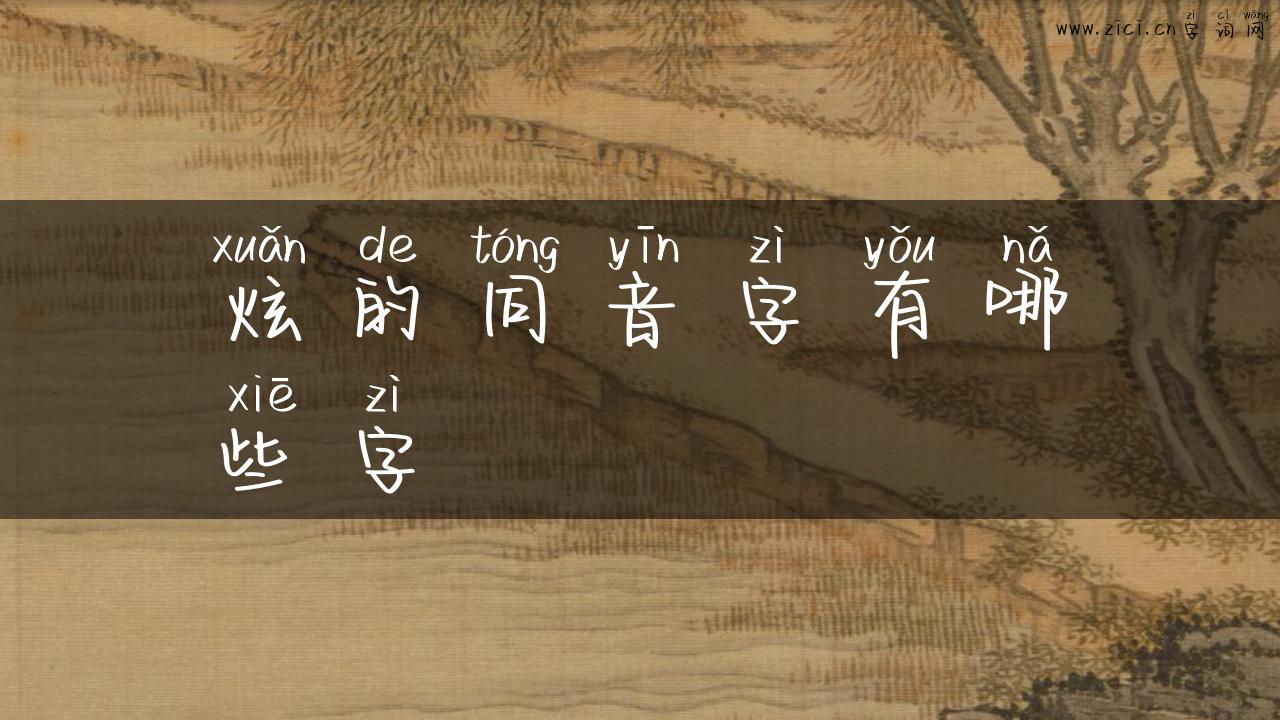 zì cí wǎng
www.zici.cn 字 词 网
xuǎn de tóng yīn zì yǒu nǎ
炫 的 同 音 字 有 哪
xiē zì
些 字